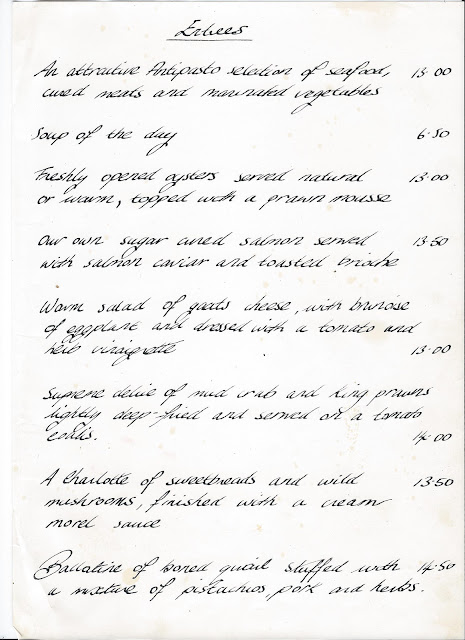 Entrees
An attractive Antipasto selection of seafood, 13·00
cured meats and marinated vegetables
Soup of the day 6·50
Freshly opened oysters served natural 13·00
or warm, topped with a prawn mousse
Our own sugar cured salmon served 13·50
with salmon caviar and toasted brioche
Warm salad of goats cheese, with brunoise
of eggplant and dressed with a tomato and
herb vinaigrette 13·00
Supreme delice of mud crab and king prawns
lightly deep-fried and served on a tomato
coulis. 14·00
A Charlotte of sweetbreads and wild 13·50
mushrooms, finished with a cream
morel sauce
Ballotine of boned quail stuffed with 14·50
a mixture of pistachios, pork and herbs.